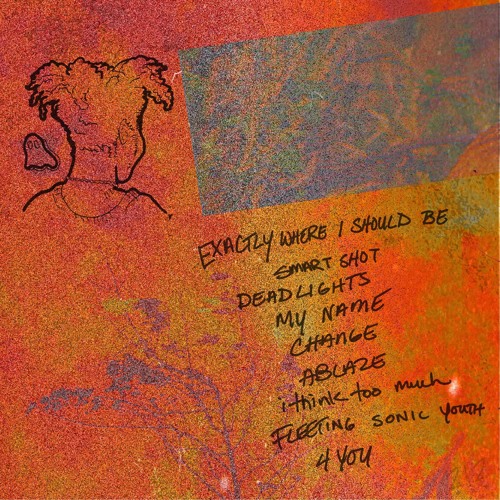 EXACTLY WHERE I SHOULD BE
SMART SHOT
DEADLIGHTS
MY NAME
CHANGE
ABLAZE
i think too much
FLEETING SONIC YOUTH
4 YOU